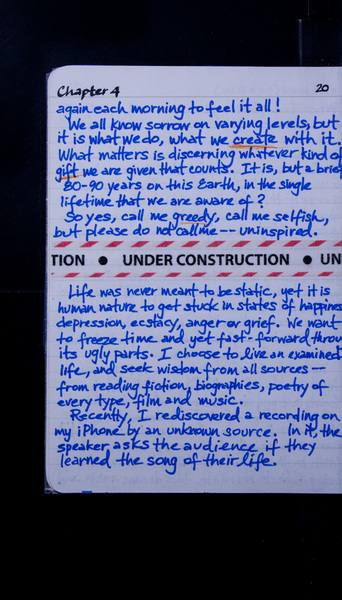 Chapter 4 20
again each morning to feel it all!
We all know sorrow on varying levels, but
it is what we do, what we create with it.
What matters is discerning whatever kind of
gift we are given that counts. It is, but a brief
80-90 years on this Earth, in the single
lifetime that we are aware of?
So yes, call me greedy, call me selfish,
but please do not call me -- uninspired.
TION ● UNDER CONSTRUCTION ● UN
Life was never meant to be static, yet it is
human nature to get stuck in states of happines
depression, ecstacy, anger or grief. We want
to freeze time and yet fast-forward throu
its ugly parts. I choose to live an examined
life, and seek wisdom from all sources --
from reading fiction, biographies, poetry of
every type, film and music.
Recently, I rediscovered a recording on
my iPhone by an unknown source. In it, the
speaker asks the audience if they
learned the song of their life.